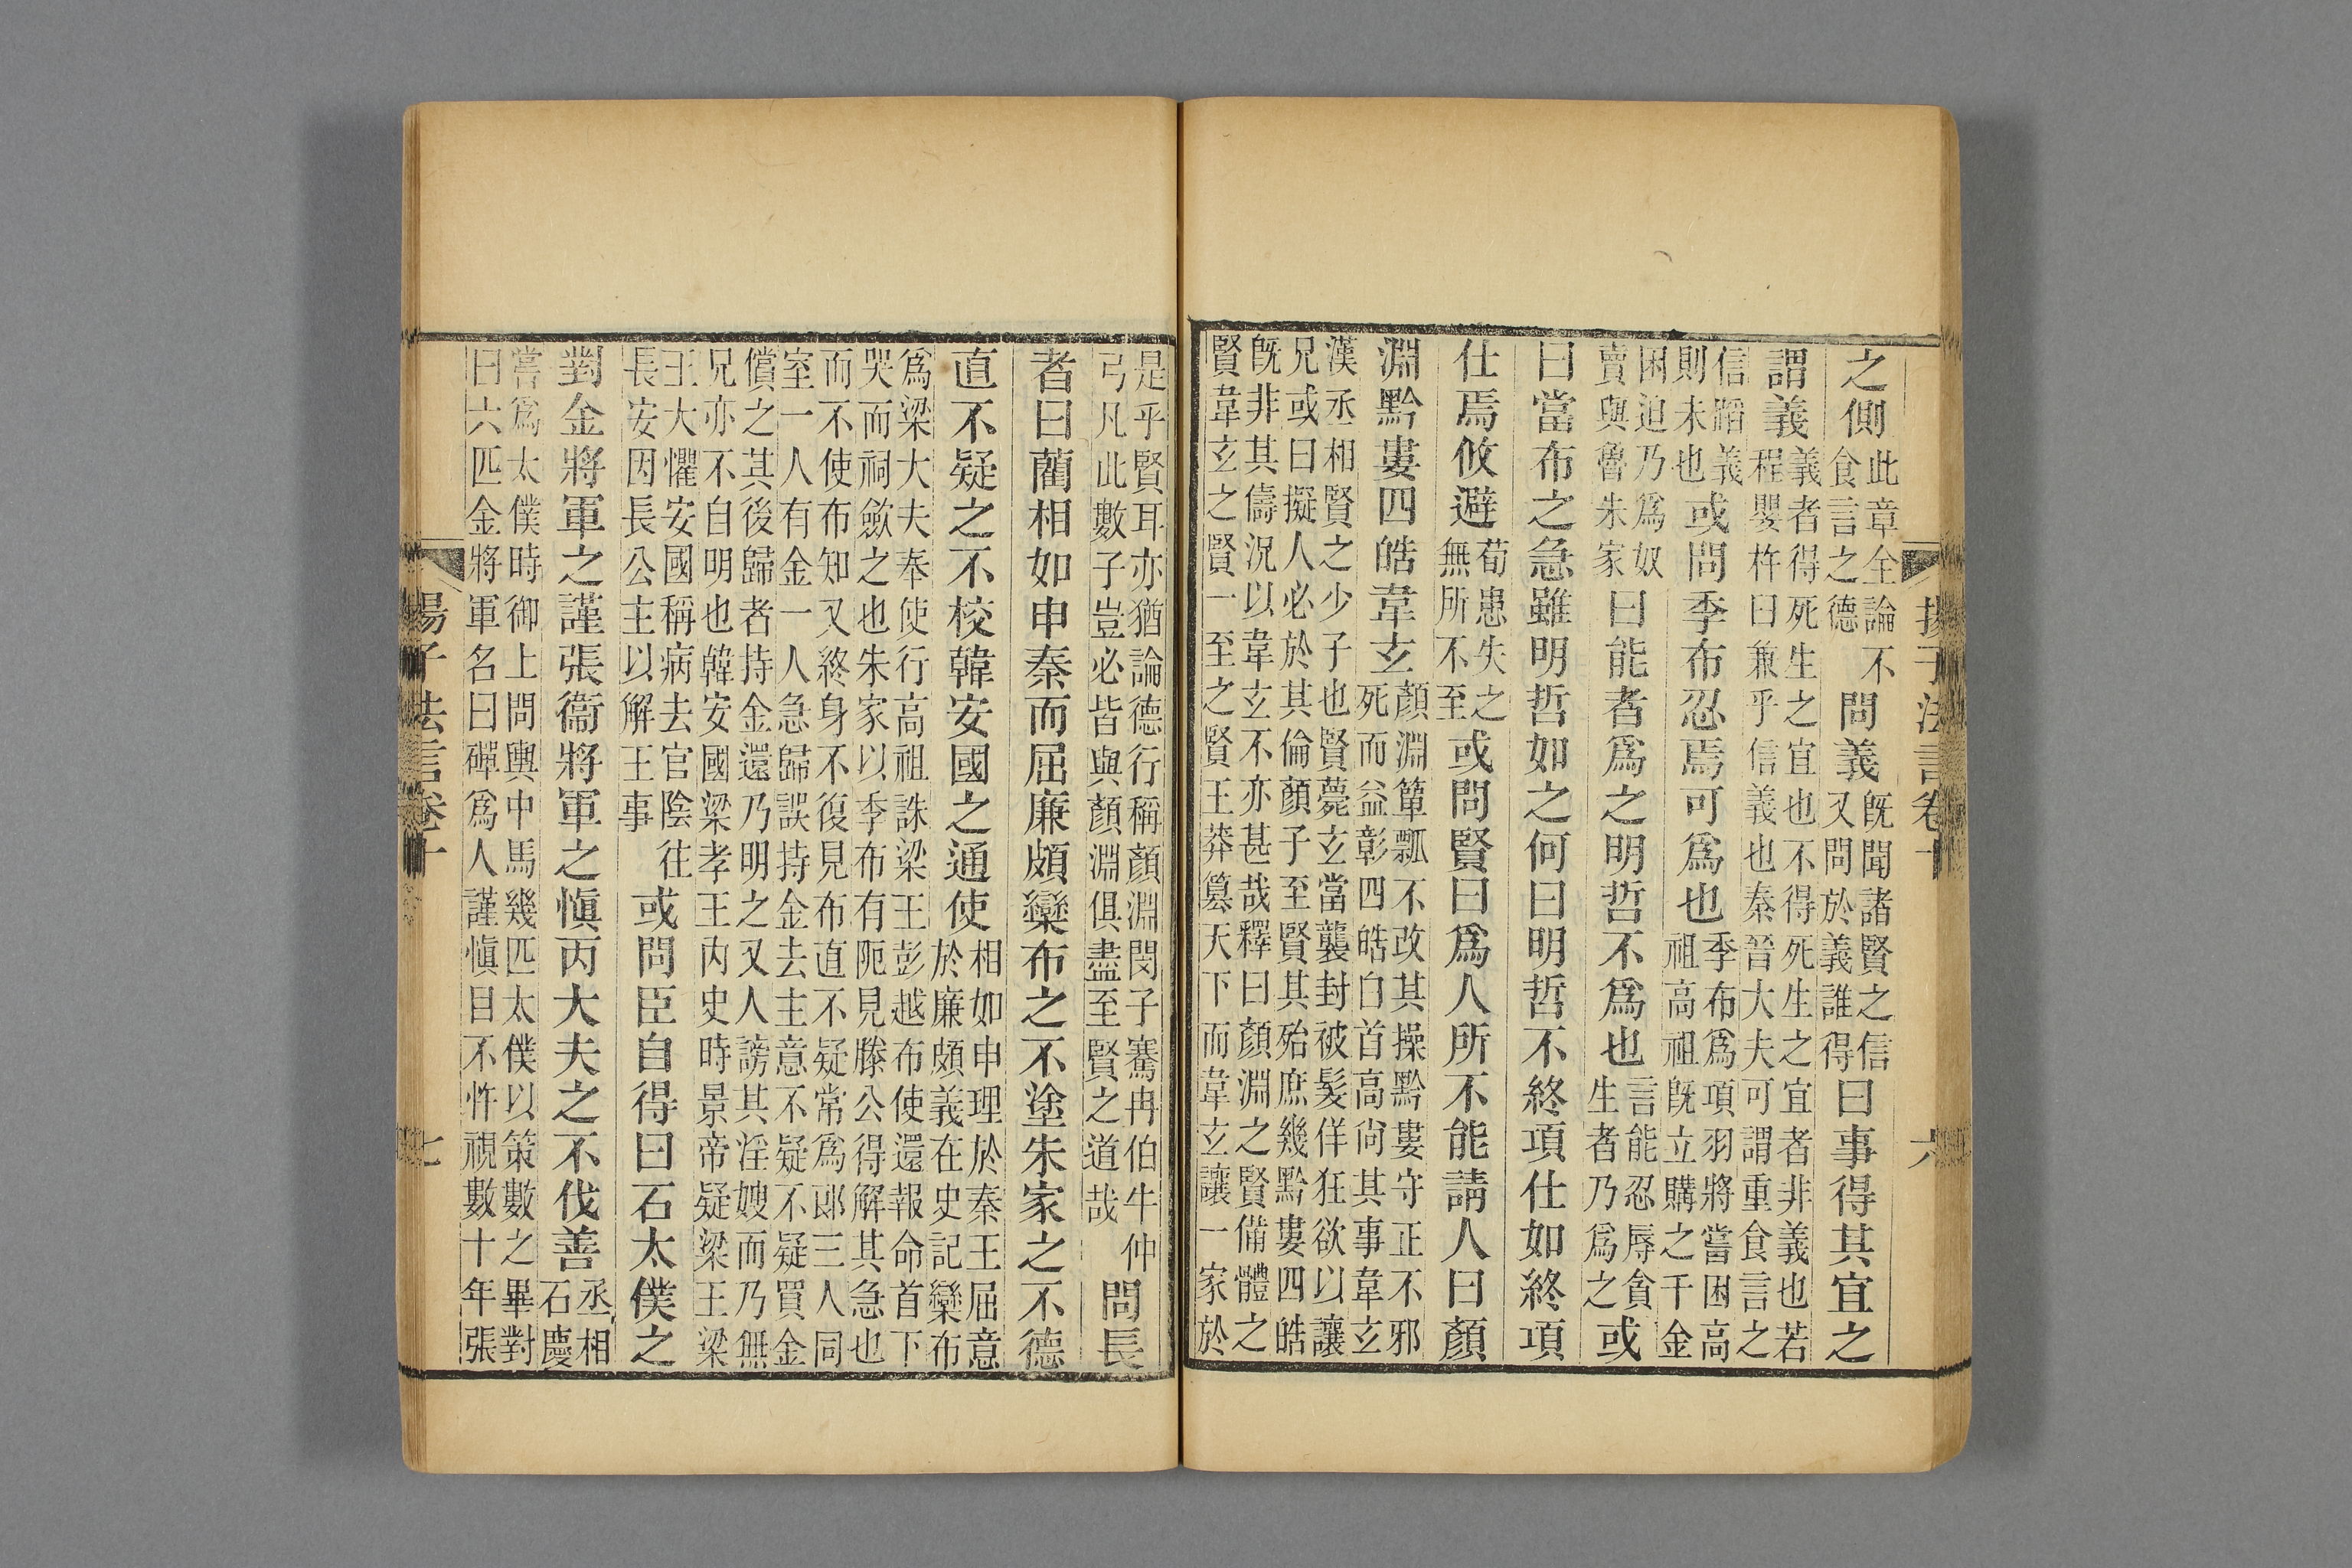 揚子法言卷十 六
之側此章全論不食言之德問義既聞諸賢之信又問於義誰得曰事得其宜之
謂義義者得死生之宜也不得死生之宜者非義也若程嬰杵臼兼乎信義也秦晉大夫可謂重食言之
信蹈義則未也或問季布忍焉可爲也季布爲項羽將嘗困高祖高祖既立購之千金
困迫乃爲奴賣與魯朱家曰能者爲之明哲不爲也言能忍辱貪生者乃爲之或
曰當布之急雖明哲如之何曰明哲不終項仕如終項
仕焉攸避荀患失之無所不至或問賢曰爲人所不能請人曰顏
淵黔婁四皓韋玄顏淵簞瓢不改其操黔婁守正不邪死而益彰四皓白首高尚其事韋玄
漢丞相賢之少子也賢薨玄當襲封被髮佯狂欲以讓兄或曰擬人必於其倫顏子至賢其殆庶幾黔婁四皓
既非其儔況以韋玄不亦甚哉釋曰顏淵之賢備體之賢韋玄之賢一至之賢王莽簒天下而韋玄讓一家於
是乎賢耳亦猶論德行稱顏淵閔子騫冉伯牛仲弓凡此數子豈必皆與顏淵俱盡至賢之道哉問長
者曰藺相如申秦而屈廉頗欒布之不塗朱家之不德
直不疑之不校韓安國之通使相如申理於秦王屈意於廉頗義在史記欒布
爲梁大夫奉使行高祖誅梁王彭越布使還報命首下哭而祠斂之也朱家以季布有阨見滕公得解其急也
而不使布知又終身不復見布直不疑常爲郎三人同室一人有金一人急歸誤持金去主意不疑不疑買金
償之其後歸者持金還乃明之又人謗其淫嫂而乃無兄亦不自明也韓安國梁孝王内史時景帝疑梁王梁
王大懼安國稱病去官陰往長安因長公主以解王事或問臣自得曰石太僕之
對金將軍之謹張衞將軍之愼丙大夫之不伐善丞相石慶
嘗爲太僕時御上問輿中馬幾匹太僕以策數之畢對曰六匹金將軍名曰磾爲人謹愼目不忤視數十年張
揚子法言卷十 七